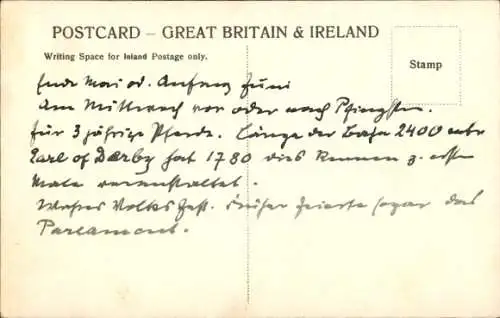 POSTCARD – GREAT BRITAIN & IRELAND
Writing Space for Inland Postage only.
Stamp
Ende Mai od. Anfang Juni
Am Mittwoch vor oder nach Pfingsten.
für 3 jährige Pferde. Länge der Bahn 2400 mtr
Earl of Daerby hat 1780 dies Rennen z. ersten
Male veranstaltet.
Wahres Volksfest. Früher feierte sogar das
Parlament.